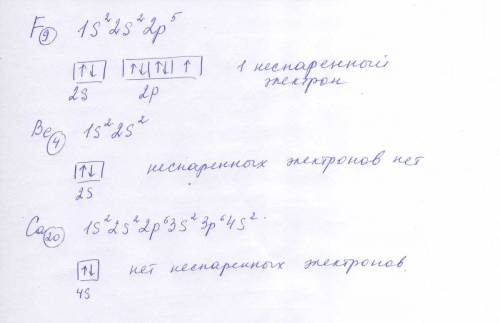 F⑨ 1s²2s²2p⁵
↑↓ ↑↓ ↑↓ ↑ 1 неспаренный
2s 2p электрон
Be④ 1s²2s²
↑↓ неспаренных электронов нет
2s
Ca⑳ 1s²2s²2p⁶3s²3p⁶4s².
↑↓ нет неспаренных электронов
4s